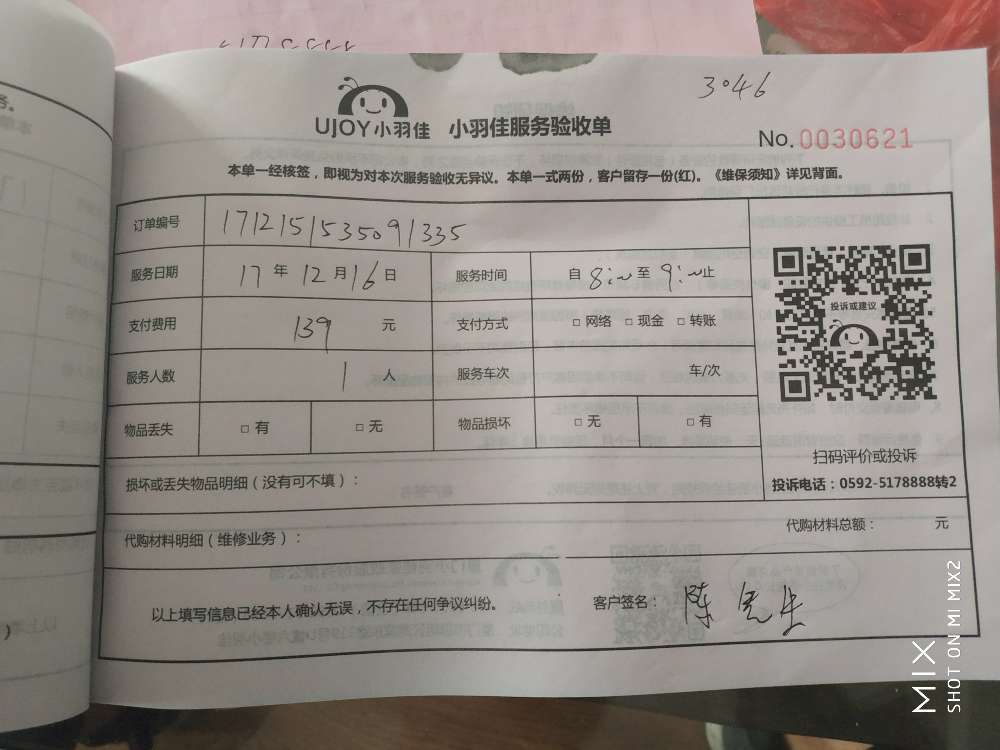 3046
UJOY小羽佳 小羽佳服务验收单
No.0030621
本单一经核签，即视为对本次服务验收无异议。本单一式两份，客户留存一份(红)。《维保须知》详见背面。
订单编号 1712151535091335
服务日期 17 年 12 月 16 日 服务时间 自 8:00 至 9:00 止
支付费用 139 元 支付方式 □ 网络 □ 现金 □ 转账
服务人数 1 人 服务车次 车/次
物品丢失 □ 有 □ 无 物品损坏 □ 无 □ 有
投诉或建议
扫码评价或投诉
投诉电话：0592-5178888转2
损坏或丢失物品明细（没有可不填）：
代购材料明细（维修业务）： 代购材料总额： 元
以上填写信息已经本人确认无误，不存在任何争议纠纷。 客户签名： 陈先生
MIX
SHOT ON MI MIX2